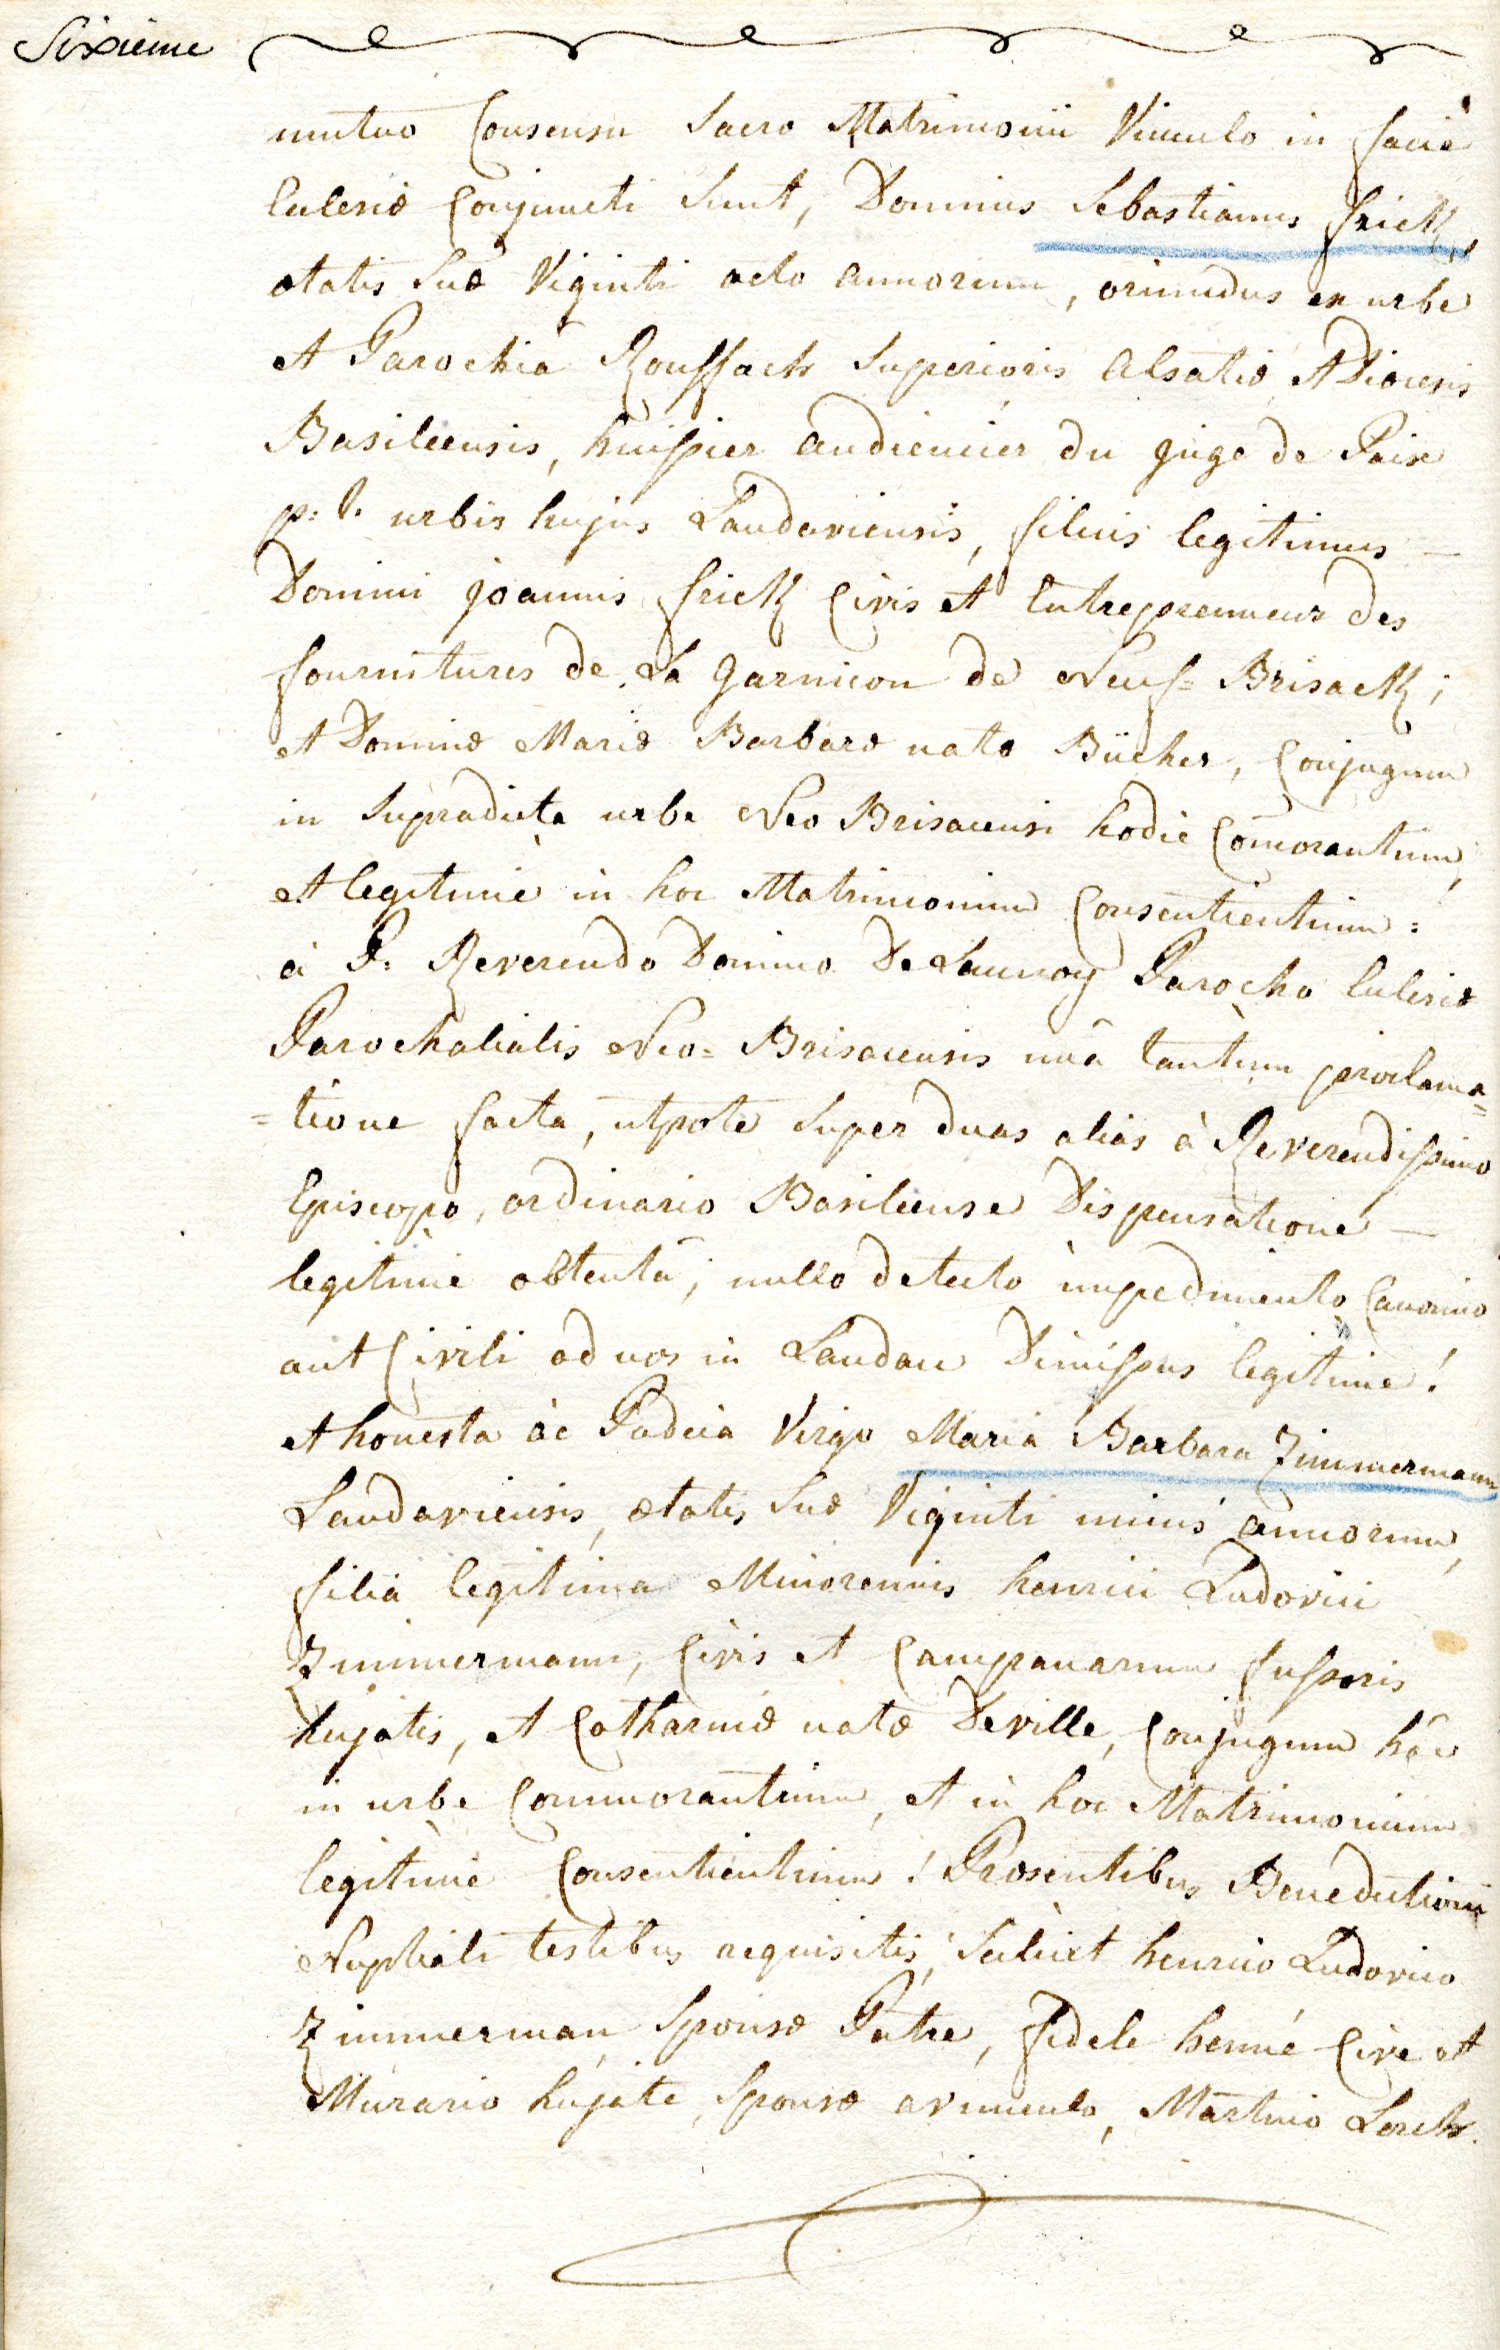 Sixieme
mutuo Consensu Sacro Matrimonii Vinculo in facie
Eclesiæ Conjuncti Sunt, Dominus Sebastianus frick,
ætatis Suæ Viginti octo annorum, oriundus ex urbe
et Parochia Rouffach Superioris Alsatiæ, et Diœcesis
Basileensis, huissier audiencier du juge de Paix
p: t. urbis hujus Landaviensis, filius legitimus —
Domini joannis frick Civis et Entreprenneur des
fournitures de La garnison de Neuf= Brisack;
et Dominæ Mariæ Barbaræ natæ Bücher, Conjugum
in Supradicta urbe Neo Brisacensi hodie Com̄orantium,
et legitimè in hoc Matrimonium Consentientium:
à P: Reverendo Domino De Launoy Parocho Eclesiæ
Parochalialis Neo= Brisacensis unâ tantùm proclama=
=tione facta, utpote Super duas alias à Reverendissimo
Episcopo, ordinario Basileense Dispensatione —
legitimè obtentâ; nullo detecto impedimento Canonico
aut Civili ad nos in Landau Dimissus legitimè!
et honesta ac Pudica Virgo Maria Barbara Zimmermann
Landaviensis, ætatis Suæ Viginti unius annorum,
filia legitima Minorennis henrici Ludovici
Zimmermann, Civis et Campanarum fusoris
hujatis, et Catharinæ natæ Deville, Conjugum hâc
in urbe Commorantium, et in hoc Matrimonium
legitimè Consentientium! Præsentibus Benedictioni
Nuptiali testibus requisitis, Scilicet henrico Ludovico
Zimmerman Sponsæ Patre, fidele henné Cive et
Murario hujate, Sponsæ avunculo, Martino Lerch.